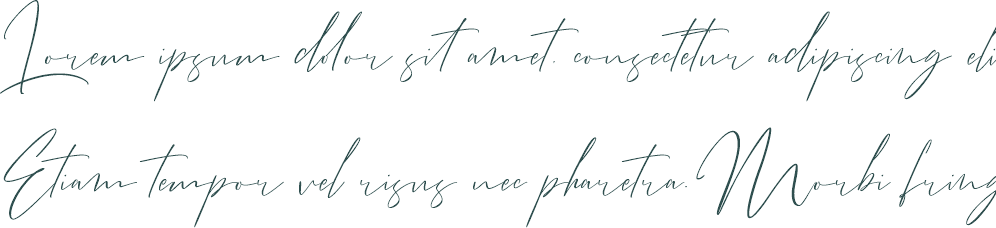 Lorem ipsum dolor sit amet, consectetur adipiscing eli
Etiam tempor vel risus nec pharetra. Morbi fring